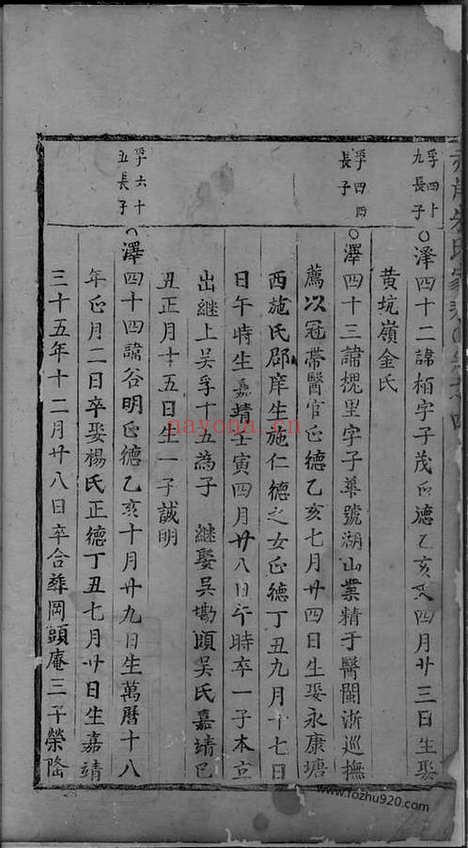 孚四十
九長子
○澤四十二諱栢字子茂正德乙亥又四月廿三日生娶
黄坑嶺金氏
孚四四
長子
○澤四十三諱槐里字子華號湖山業精于醫閩浙巡撫
薦以冠帶醫官正德乙亥七月廿四日生娶永康塘
西施氏郡庠生施仁德之女正德丁丑九月十七日
日午時生嘉靖壬寅四月廿八日午時卒一子本立
出繼上吴孚十五為子 継娶吴墈頭吴氏嘉靖己
丑正月十五日生一子誠明
孚六十
五長子
○澤四十四諱谷明正德乙亥十月廿九日生萬曆十八
年正月二日卒娶楊氏正德丁丑七月廿日生嘉靖
三十五年十二月廿八日卒合葬岡頭庵三子榮隆
nayona.cn
www.fozhu920.com